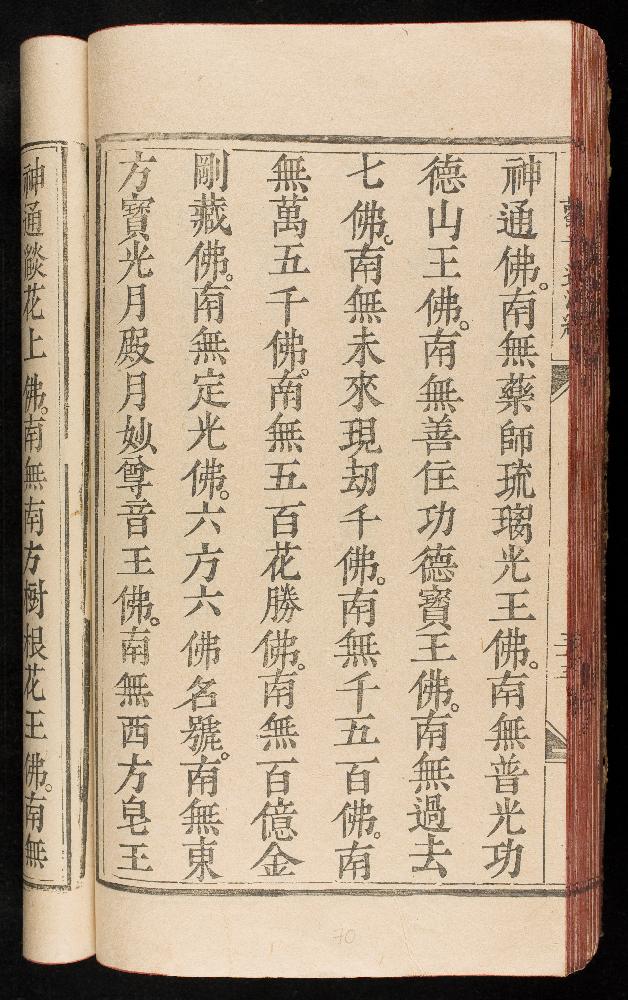 神通佛。南無藥師琉璃光王佛。南無普光功
德山王佛。南無善住功德寳王佛。南無過去
七佛。南無未來現刼千佛。南無千五百佛。南
無萬五千佛。南無五百花勝佛。南無百億金
剛藏佛。南無定光佛。六方六佛名號。南無東
方寳光月殿月妙尊音王佛。南無西方皂王
神通燄花上佛。南無南方樹根花王佛。南無
70